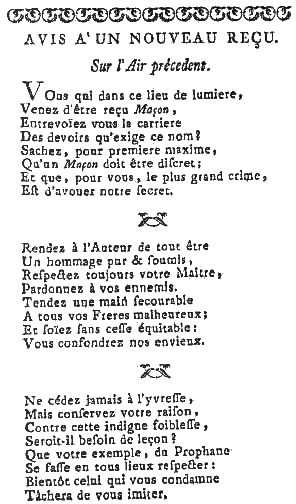 AVIS A' UN NOUVEAU REÇU.
Sur l'Air précedent.
VOus qui dans ce lieu de lumiere,
Venez d'être reçu Maçon,
Entrevoïez vous la carriere
Des devoirs qu'exige ce nom?
Sachez, pour premiere maxime,
Qu'un Maçon doit être discret;
Et que, pour vous, le plus grand crime,
Est d'avouer notre secret.
Rendez à l'Auteur de tout être
Un hommage pur & soumis,
Respectez toujours votre Maître,
Pardonnez à vos ennemis.
Tendez une main secourable
A tous vos Freres malheureux;
Et soïez sans cesse équitable:
Vous confondrez nos envieux.
Ne cédez jamais à l'yvresse,
Mais conservez votre raison,
Contre cette indigne foiblesse,
Seroit-il besoin de leçon?
Que votre exemple, du Prophane
Se fasse en tous lieux respecter:
Bientôt celui qui vous condamne
Tâchera de vous imiter.